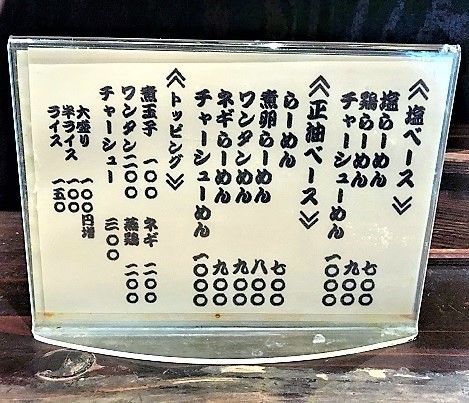 《塩ベース》
塩らーめん 七〇〇
鶏らーめん 九〇〇
チャーシューめん 一〇〇〇
《正油ベース》
らーめん 七〇〇
煮卵らーめん 八〇〇
ワンタンめん 九〇〇
ネギらーめん 九〇〇
チャーシューめん 一〇〇〇
《トッピング》
煮玉子 一〇〇 ネギ 二〇〇
ワンタン 二〇〇 蒸鶏 二〇〇
チャーシュー 三〇〇
大盛り 一〇〇円増
半ライス 一〇〇
ライス 一五〇